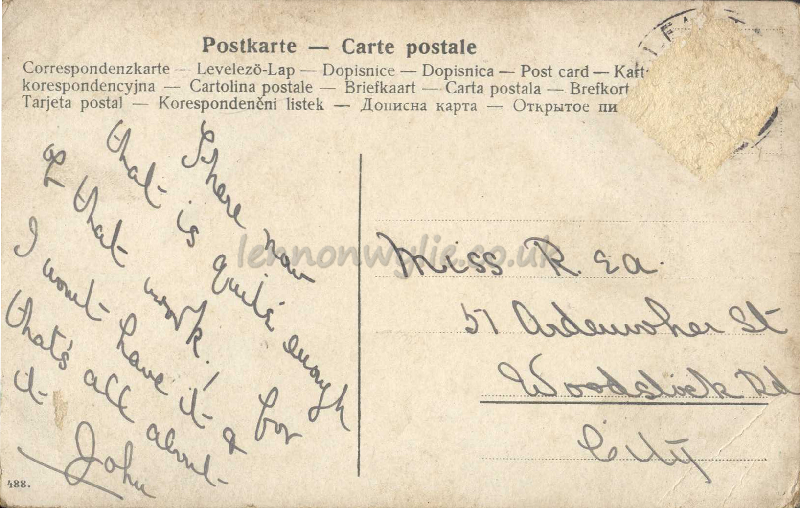 Postkarte — Carte postale
Correspondenzkarte — Levelezö-Lap — Dopisnice — Dopisnica — Post card — Kart
korespondencyjna — Cartolina postale — Briefkaart — Carta postala — Brefkort
Tarjeta postal — Korespondenčni listek — Дописна карта — Открытое пи
Shere now
that is quite enough
of that work! for
I won't have it &
that's all about
it
John
lennonwylie.co.uk
Miss Rea.
51 Ardenvoher St
Woodstock Rd
City
488.